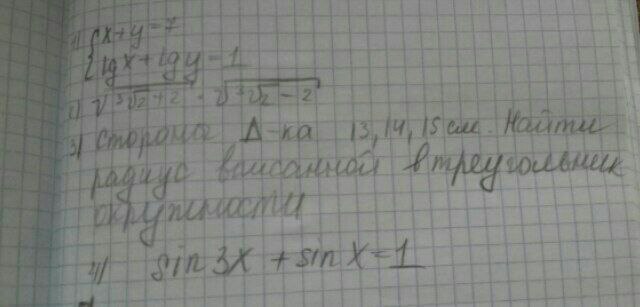 1) { x+y=7
{ lgx+lgy=1
2) √(³√2+2) · √(³√2-2)
3) Сторона Δ-ка 13,14,15 см. Найти
радиус вписанной в треугольник
окружности
4) sin3x+sinx=1